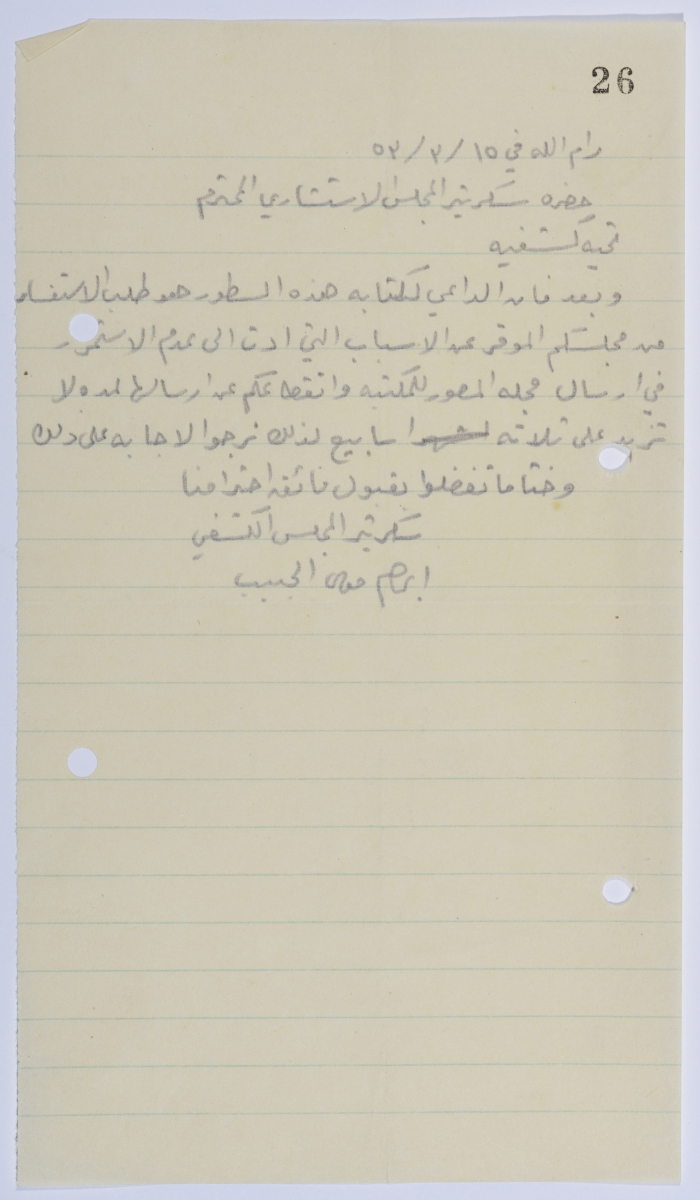 26
رام الله في ١٥/٣/٥٣
حضره سكرتير المجلس الاستشاري المحترم
تحيه كشفيه
وبعد فان الداعي لكتابه هذه السطور هو طلب الاستفسار
من مجلسكم الموقر عن الاسباب التي ادت الى عدم الاستمرار
في ارسال مجله المصور للمكتبه وانقطاعكم عن ارسالها لمده لا
تزيد على ثلاثه اسابيع لذلك نرجوا لاجابه على ذلك
وختاما تفضلوا بقبول فائق احترامنا
سكرتير المجلس الكشفي
ابراهيم موسى